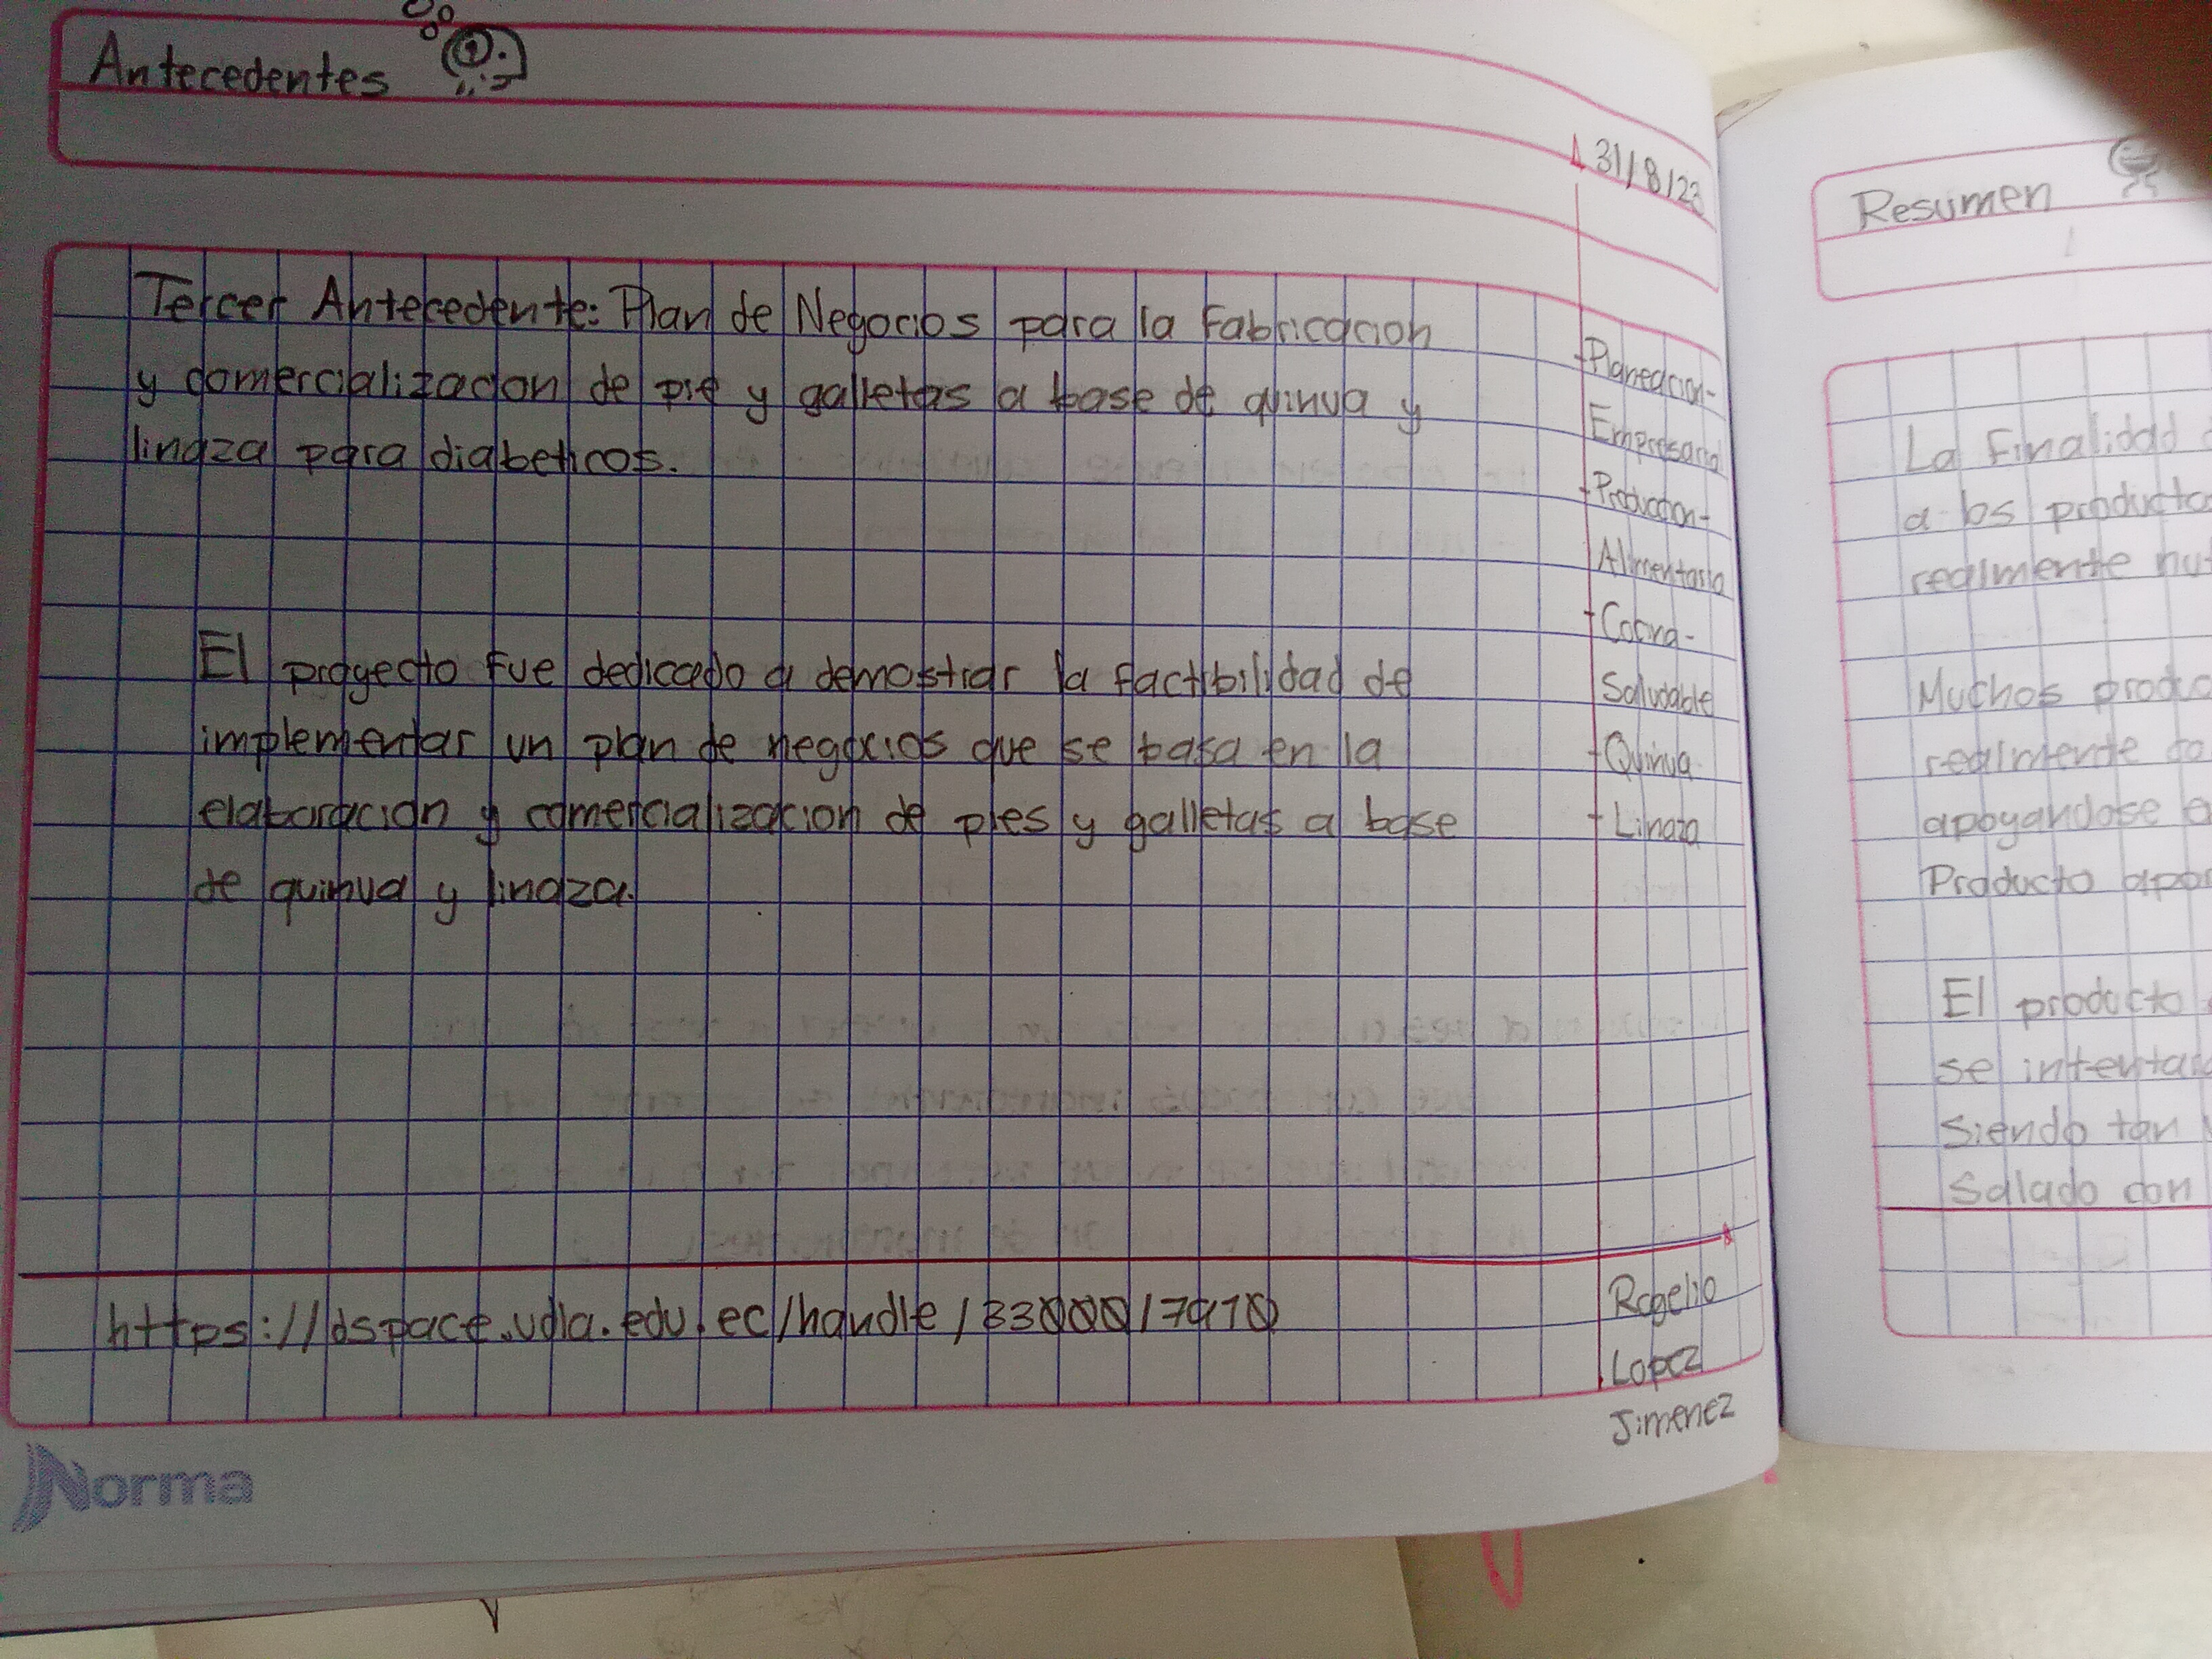 Antecedentes
31/8/23
Tercer Antecedente: Plan de Negocios para la Fabricacion
y comercializacion de pie y galletas a base de quinua y
linaza para diabeticos.
El proyecto fue dedicado a demostrar la factibilidad de
implementar un plan de negocios que se basa en la
elaboracion y comercializacion de pies y galletas a base
de quinua y linaza.
-Planeacion-
Empresaria
-Produccion-
Alimentaria
-Cocina-
Saludable
-Quinua
-Linaza
https://dspace.udla.edu.ec/handle/33000/7970
Rogelio
Lopez
Jimenez
Norma
Resumen
La Finalidad
a los
realmente
Muchos
realmente
apoyandose
Producto
El producto
se
Siendo tan
Salado con